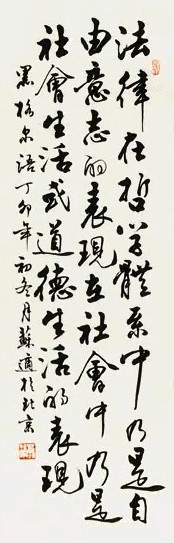 法律在哲学體系中乃是自
由意志的表現在社會中乃是
社會生活或道德生活的表現
黑格尔语丁卯年初冬月蘇適於北京